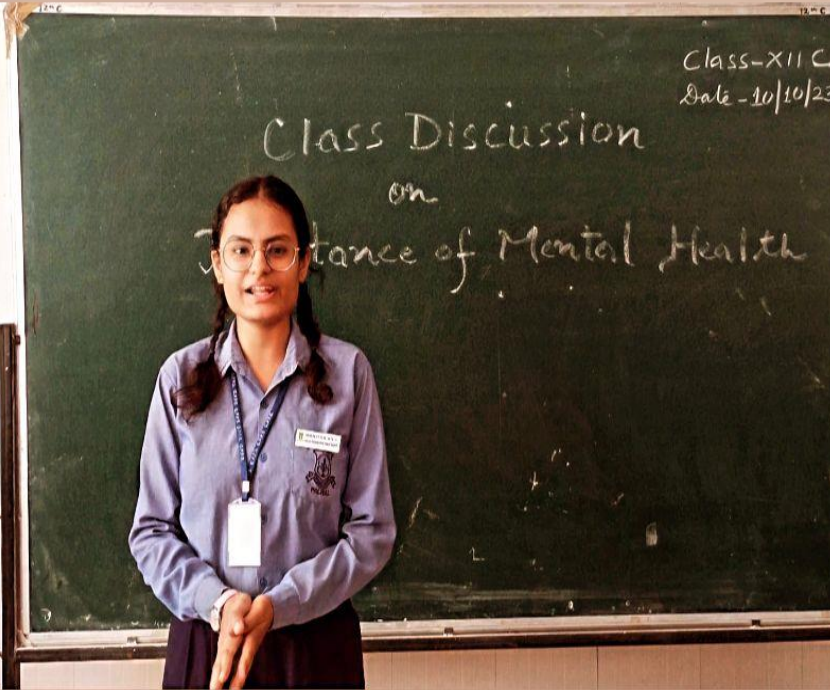 12th C
12th C
Class-XII C
Date-10/10/23
Class Discussion
on
tance of Mental Health